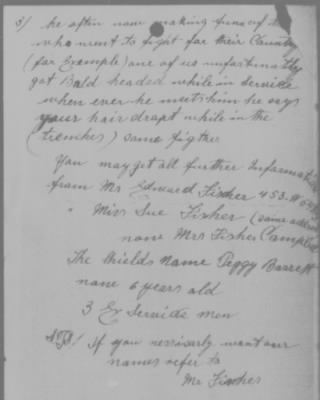 3) he often now making fun of
who went to fight for their Country
(for Example) one of us unfortunatly
got Bald headed while in Service
when ever he meets him he says
your hair dropt while in the
(trenches) some figther
You may get all further Informati
from Mr Edward Fischer 453 W
" Miss Sue Fisher (same
now Mrs Fisher Campbell
The Childs Name Peggy Barrett
now 6 years old
3 Ex Service men
If you nessisarly want our
names refer to
Mr Fischer